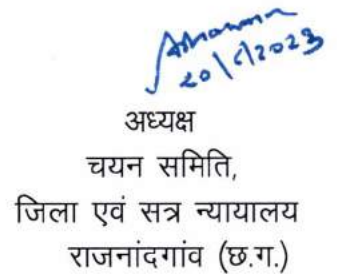 20/6/2023
अध्यक्ष
चयन समिति,
जिला एवं सत्र न्यायालय
राजनांदगांव (छ.ग.)